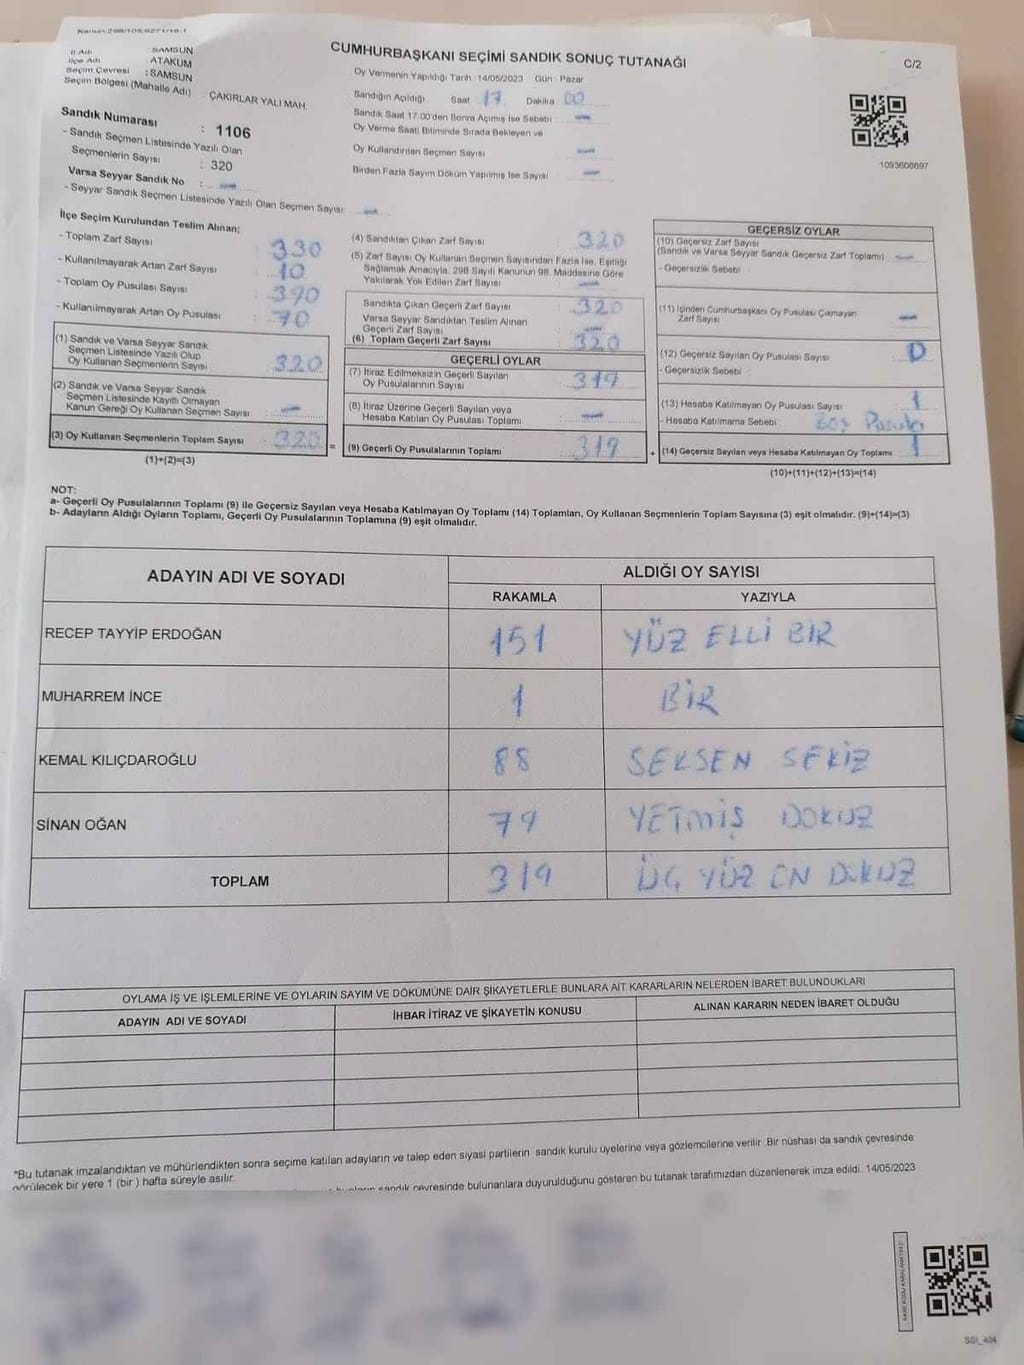 CUMHURBAŞKANI SEÇİMİ SANDIK SONUÇ TUTANAĞI
C/2
İl Adı : SAMSUN
İlçe Adı : ATAKUM
Seçim Çevresi : SAMSUN
Seçim Bölgesi (Mahalle Adı) : ÇAKIRLAR YALI MAH.
Sandık Numarası : 1106
- Sandık Seçmen Listesinde Yazılı Olan
Seçmenlerin Sayısı : 320
Varsa Seyyar Sandık No : -
- Seyyar Sandık Seçmen Listesinde Yazılı Olan Seçmen Sayısı: -
Oy Vermenin Yapıldığı Tarih : 14/05/2023 Gün : Pazar
Sandığın Açıldığı Saat 17 Dakika 00
Sandık Saat 17:00'den Sonra Açımış İse Sebebi -
Oy Verme Saati Bitiminde Sırada Bekleyen ve
Oy Kullandırılan Seçmen Sayısı -
Birden Fazla Sayım Döküm Yapılmış İse Sayısı -
1093608697
İlçe Seçim Kurulundan Teslim Alınan;
- Toplam Zarf Sayısı : 330
- Kullanılmayarak Artan Zarf Sayısı : 10
- Toplam Oy Pusulası Sayısı : 390
- Kullanılmayarak Artan Oy Pusulası : 70
(1) Sandık ve Varsa Seyyar Sandık
Seçmen Listesinde Yazılı Olup
Oy Kullanan Seçmenlerin Sayısı 320
(2) Sandık ve Varsa Seyyar Sandık
Seçmen Listesinde Kayıtlı Olmayan
Kanun Gereği Oy Kullanan Seçmen Sayısı -
(3) Oy Kullanan Seçmenlerin Toplam Sayısı 320 =
(1)+(2)=(3)
(4) Sandıktan Çıkan Zarf Sayısı 320
(5) Zarf Sayısı Oy Kullanan Seçmen Sayısından Fazla İse, Eşitliği
Sağlamak Amacıyla, 298 Sayılı Kanunun 98. Maddesine Göre
Yakılarak Yok Edilen Zarf Sayısı -
Sandıkta Çıkan Geçerli Zarf Sayısı 320
Varsa Seyyar Sandıktan Teslim Alınan
Geçerli Zarf Sayısı -
(6) Toplam Geçerli Zarf Sayısı 320
GEÇERLİ OYLAR
(7) İtiraz Edilmeksizin Geçerli Sayılan
Oy Pusulalarının Sayısı 319
(8) İtiraz Üzerine Geçerli Sayılan veya
Hesaba Katılan Oy Pusulası Toplamı -
(9) Geçerli Oy Pusulalarının Toplamı 319 +
GEÇERSİZ OYLAR
(10) Geçersiz Zarf Sayısı
(Sandık ve Varsa Seyyar Sandık Geçersiz Zarf Toplamı) -
- Geçersizlik Sebebi :
(11) İçinden Cumhurbaşkanı Oy Pusulası Çıkmayan
Zarf Sayısı -
(12) Geçersiz Sayılan Oy Pusulası Sayısı 0
- Geçersizlik Sebebi :
(13) Hesaba Katılmayan Oy Pusulası Sayısı 1
- Hesaba Katılmama Sebebi : Boş Pusula
(14) Geçersiz Sayılan veya Hesaba Katılmayan Oy Toplamı 1
(10)+(11)+(12)+(13)=(14)
NOT:
a- Geçerli Oy Pusulalarının Toplamı (9) ile Geçersiz Sayılan veya Hesaba Katılmayan Oy Toplamı (14) Toplamları, Oy Kullanan Seçmenlerin Toplam Sayısına (3) eşit olmalıdır. (9)+(14)=(3)
b- Adayların Aldığı Oyların Toplamı, Geçerli Oy Pusulalarının Toplamına (9) eşit olmalıdır.
ADAYIN ADI VE SOYADI ALDIĞI OY SAYISI
RAKAMLA YAZIYLA
RECEP TAYYİP ERDOĞAN 151 YÜZ ELLİ BİR
MUHARREM İNCE 1 BİR
KEMAL KILIÇDAROĞLU 88 SEKSEN SEKİZ
SİNAN OĞAN 79 YETMİŞ DOKUZ
TOPLAM 319 ÜÇ YÜZ ON DOKUZ
OYLAMA İŞ VE İŞLEMLERİNE VE OYLARIN SAYIM VE DÖKÜMÜNE DAİR ŞİKAYETLERLE BUNLARA AİT KARARLARIN NELERDEN İBARET BULUNDUKLARI
ADAYIN ADI VE SOYADI İHBAR İTİRAZ VE ŞİKAYETİN KONUSU ALINAN KARARIN NEDEN İBARET OLDUĞU
*Bu tutanak imzalandıktan ve mühürlendikten sonra seçime katılan adayların ve talep eden siyasi partilerin sandık kurulu üyelerine veya gözlemcilerine verilir .Bir nüshası da sandık çevresinde
görülecek bir yere 1 (bir ) hafta süreyle asılır.
sandık çevresinde bulunanlara duyurulduğunu gösteren bu tutanak tarafımızdan düzenlenerek imza edildi. 14/05/2023